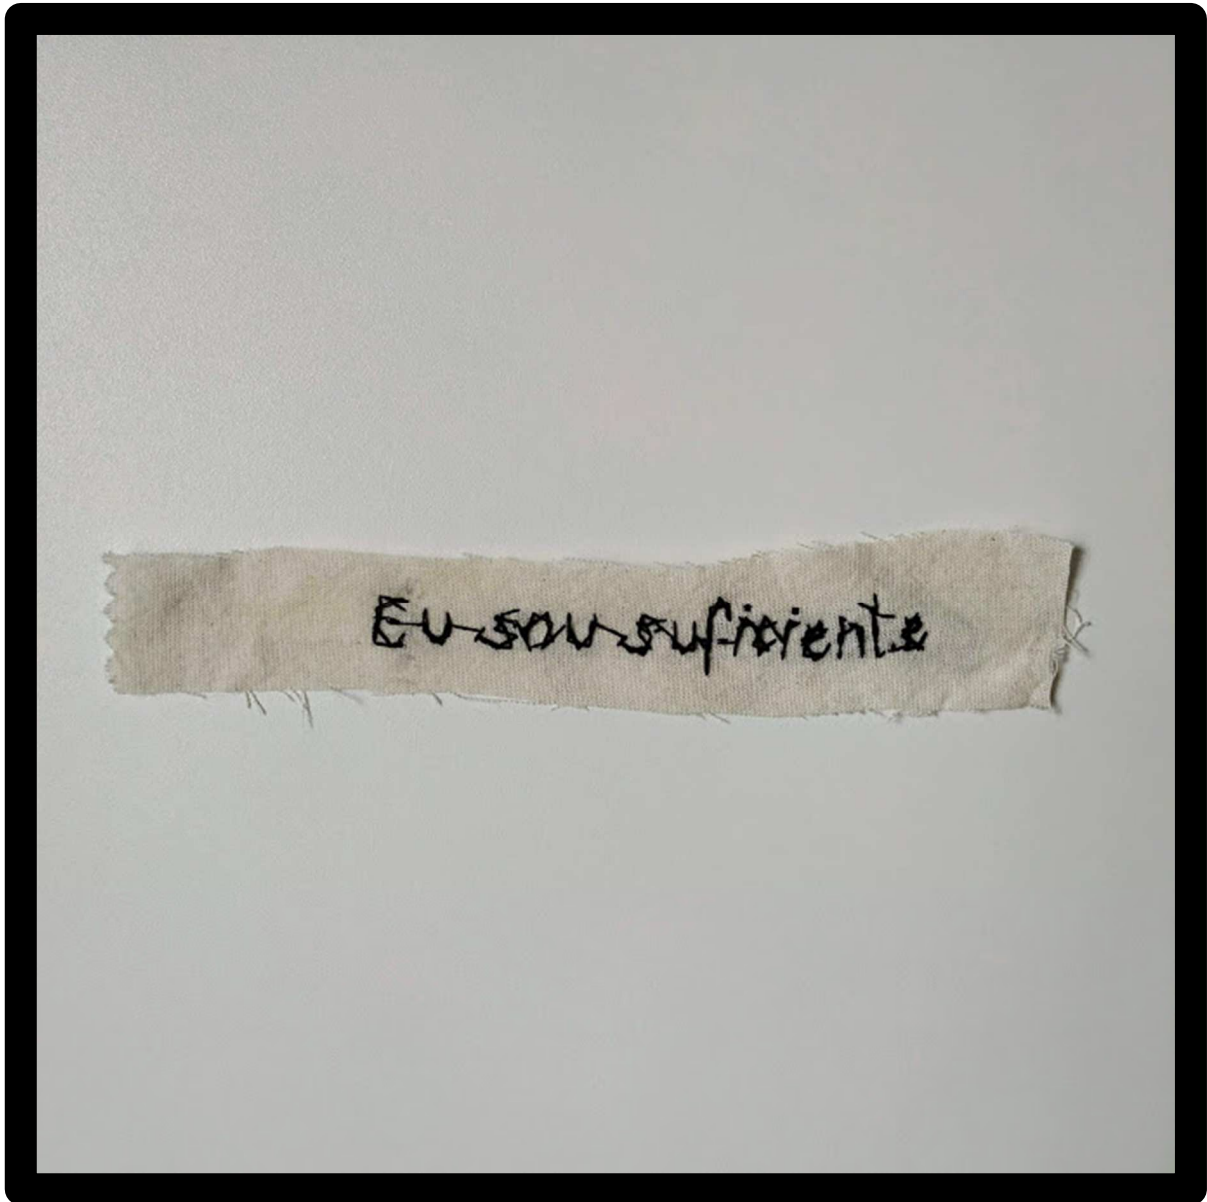 Eu sou suficiente